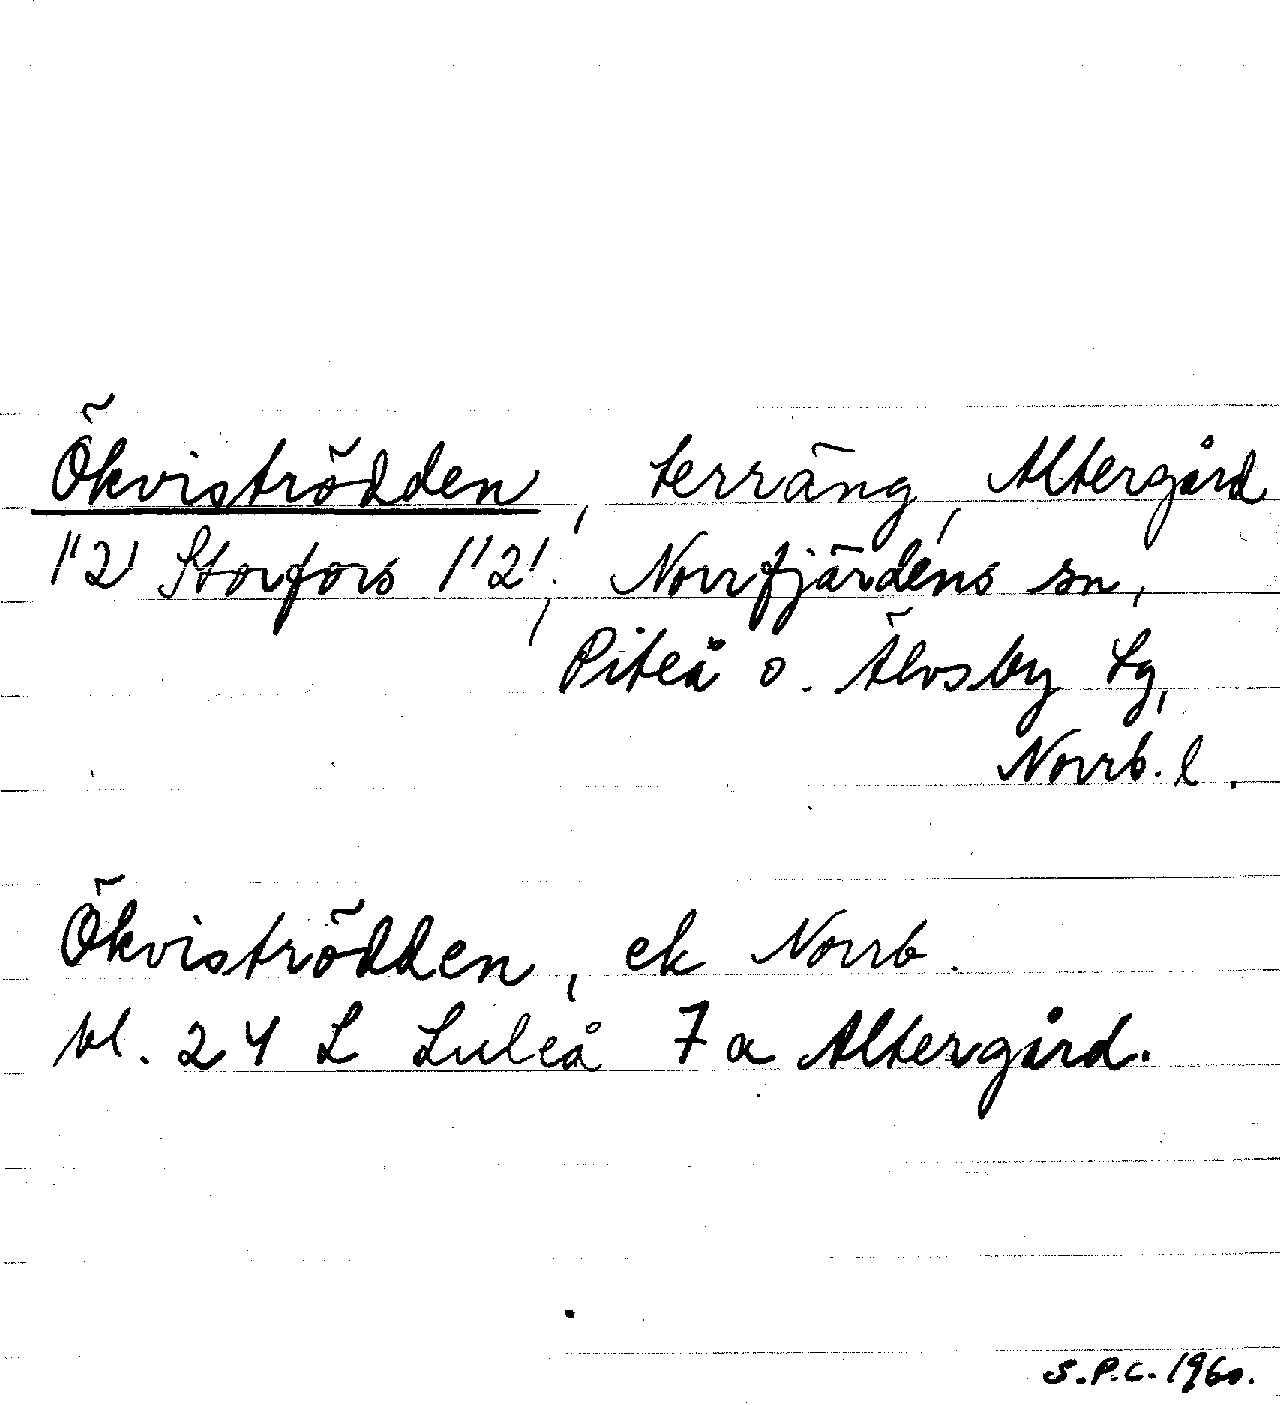 Ökviströdden, terräng, Altergård
1"2) Storfors 1"2!; Norrfjärdens sn,
Piteå o. Älvsby tg,
Norrb. l.
Ökviströdden, ek Norrb.
bl. 24 L Luleå 7a Altergård.
S.P.C. 1960.